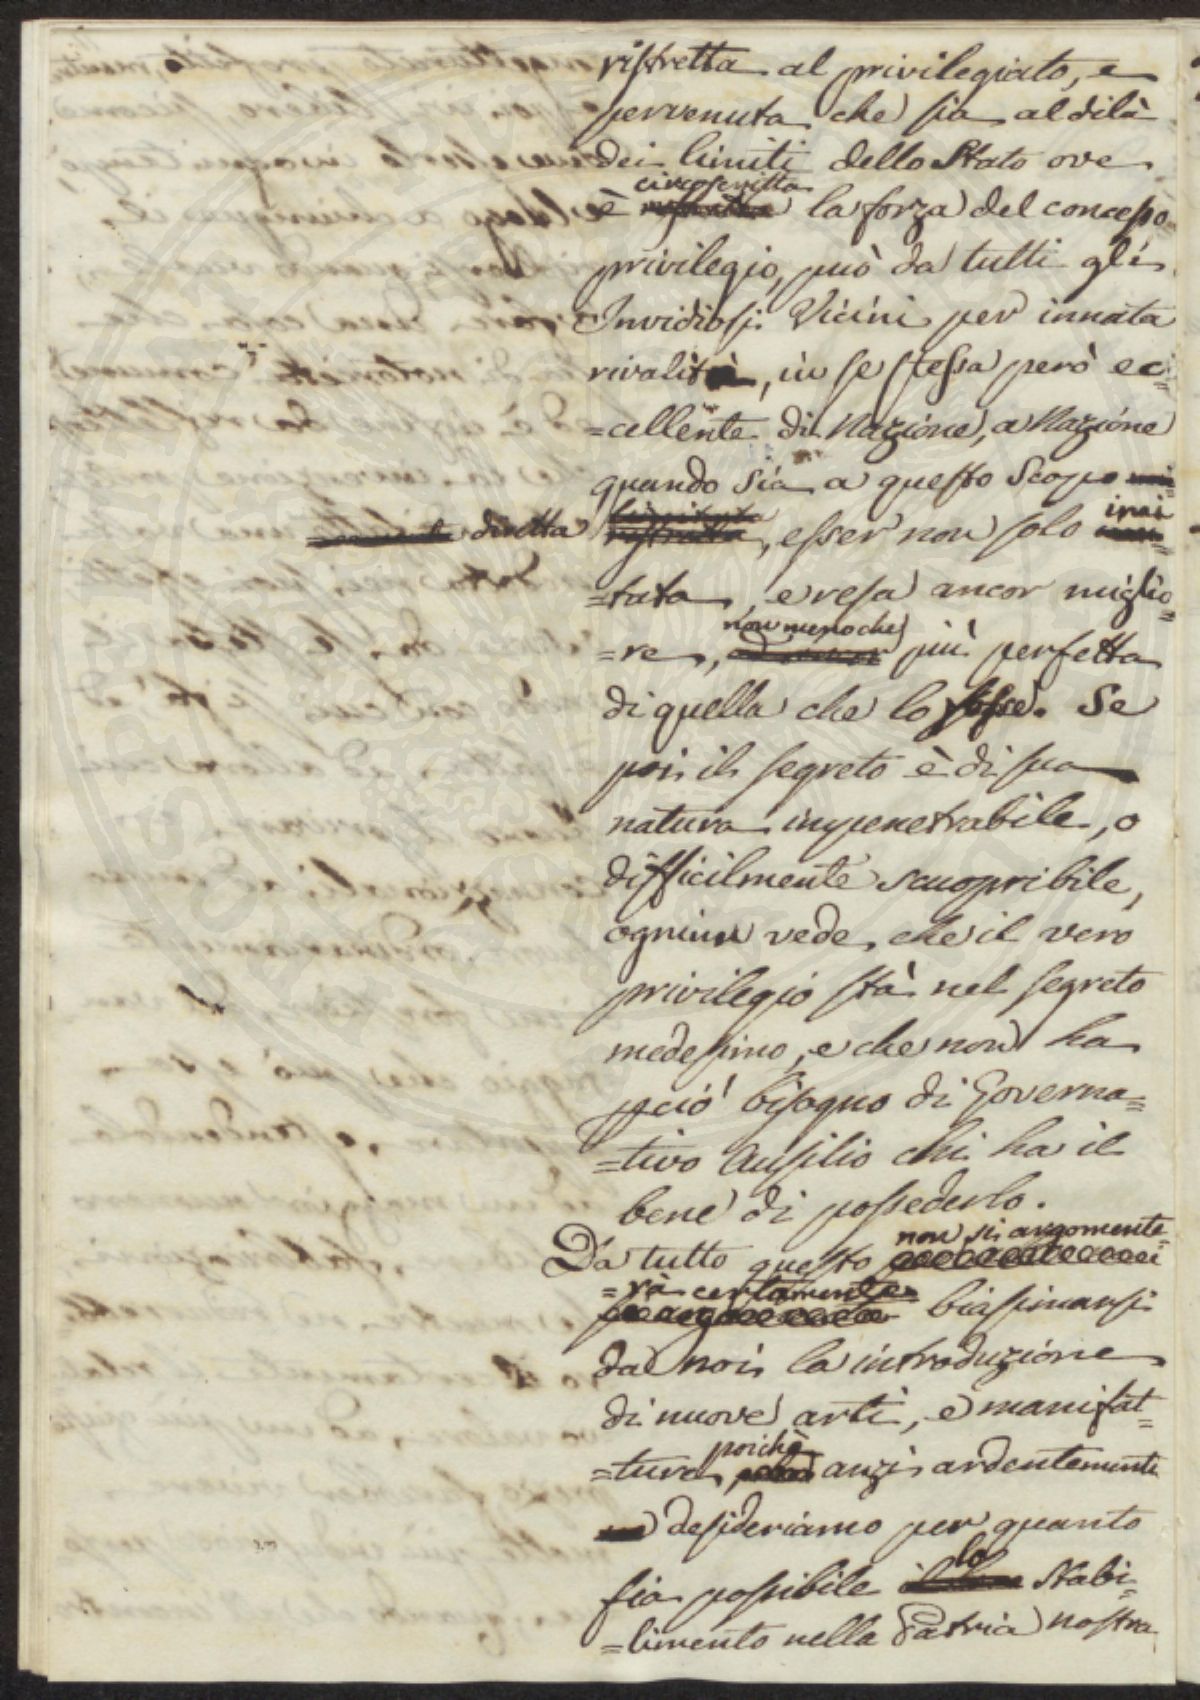 ristretta al privilegiato, e
pervenuta che sia al di là
dei limiti dello Stato ove
circoscritta
è la forza del concesso
privilegio, può da tutti gl'
Invidiosi Vicini per innata
rivalità, in se stessa però ec=
=cellente di Nazione, a Nazione
quando sia a questo scopo
diretta
limitata
ristretta, esser non solo imi
=tata, e resa ancor miglio=
non meno che
=re, più perfetta
di quella che lo fosse. Se
poi il segreto è di sua
natura impenetrabile, o
difficilmente scuopribile,
ogniun vede, che il vero
privilegio stà nel segreto
medesimo, e che non ha
perciò bisogno di Governa=
=tivo Ausilio chi ha il
bene di possederlo.
non si argomente=
Da tutto questo
=rà certamente
biasimarsi
da noi la introduzione
di nuove arti, e manifat=
poichè
=ture, anzi ardentemente
desideriamo per quanto
lo
sia possibile Stabi=
=limento nella Patria nostra